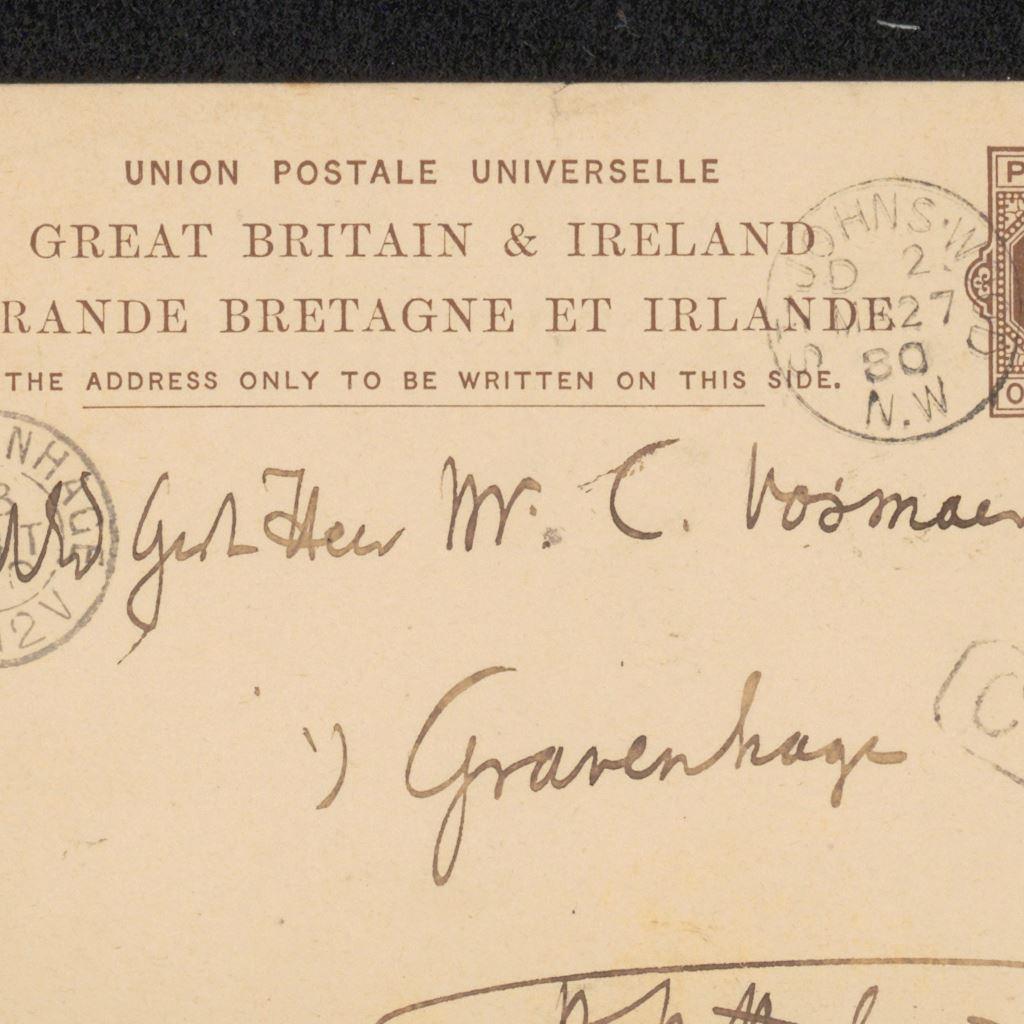 UNION POSTALE UNIVERSELLE
GREAT BRITAIN & IRELAND
RANDE BRETAGNE ET IRLANDE
THE ADDRESS ONLY TO BE WRITTEN ON THIS SIDE.
JOHNS.W
2.
27
80
N.W
P
O
NHAGE
12V
Heer Mr. C. Vosmaer
Gravenhage
C